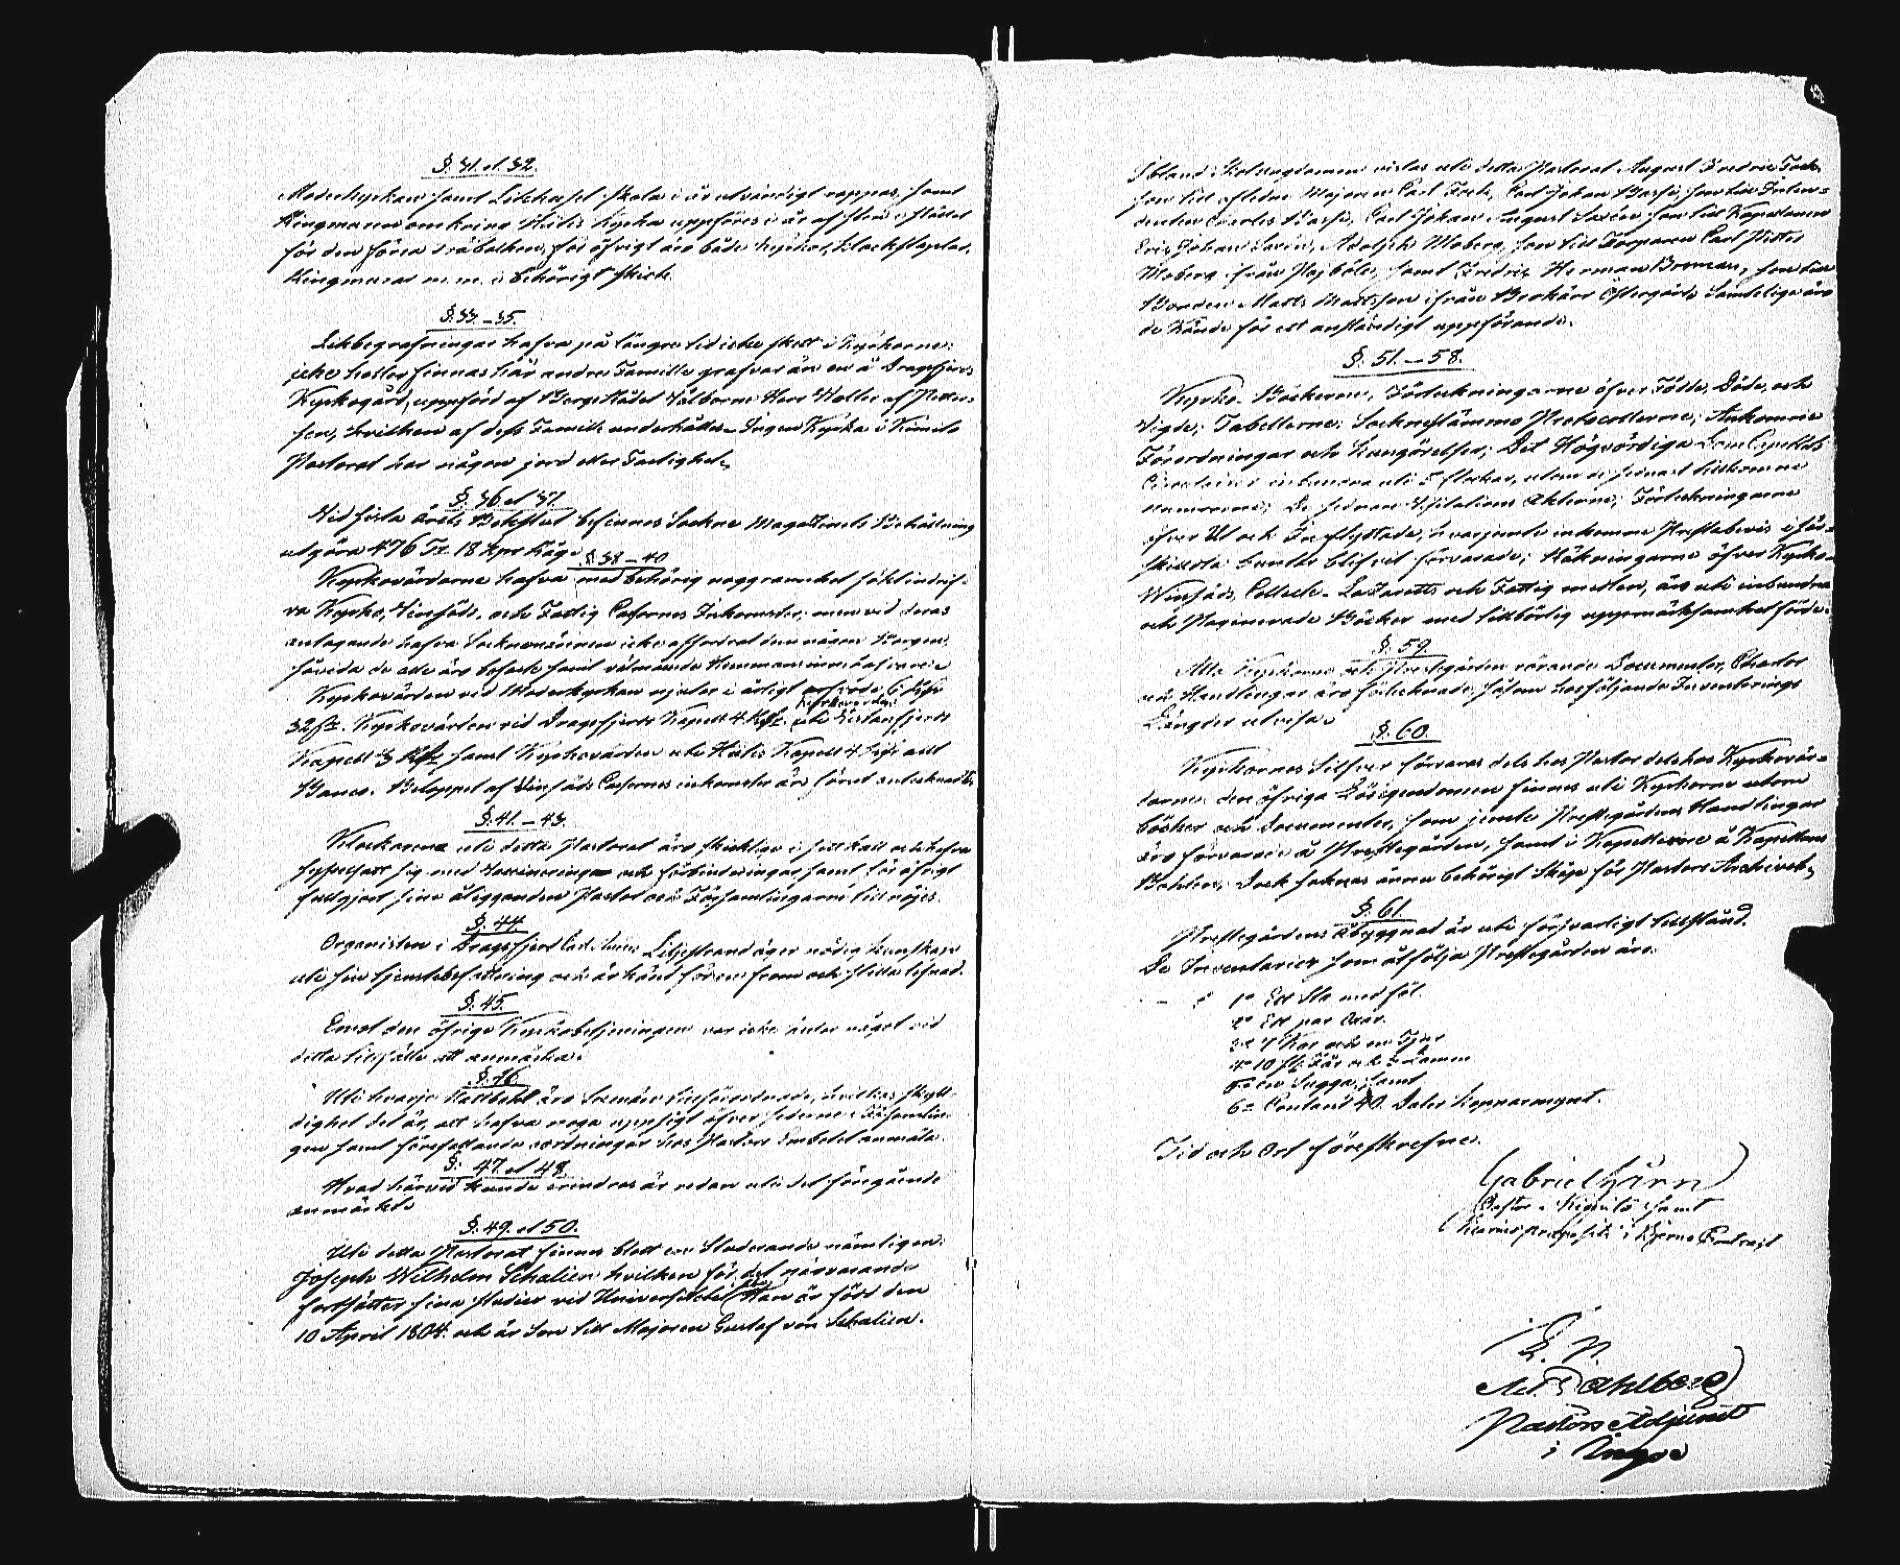 §. 31. et 32.
Moderkyrkan samt Lilchapel Skola i år utvändigt rappas, samt
Ringmuren omkring Hitis Kyrka uppföres i år af sten i stället
för den förra träbalken, för öfrigt äro både Kyrkor, Klockstaplar,
Ringmurar m. m. i behörigt skick.
§. 33. – 35.
Likbegrafningar hafva på längre tid icke skett i Kyrkorne;
icke heller finnas här andra Familie grafvar än en å Dragsfjerds
Kyrkogård, uppförd af Bergsrådet Välborne Herr Wolter af Petter-
sen, hvilken af dess Familie underhålles. Ingen Kyrka i Kimito
Pastorat har någon jord eller Fastighet.
§. 36 et 37.
Vid sista årets Bokslut befinnes Sockne Magazinets Behållning
utgöra 476 Tr. 18 kpr Råg.
§. 38 – 40
Kyrkovärdarne hafva med behörig noggranhet sökt indrif-
va Kyrko, Vinsäds, och Fattig Cassornes Inkomster; men vid deras
antagande hafva Sockenmännen icke affordrat dem någon Borgen,
såvida de alle äro besutne samt välmående Hemmans innehafvare.
Kyrkovärden vid Moderkyrkan njuter i årligt arfvode 6 Rß
32 ß. Kyrkovärden vid Dragsfjerds Kapell 4 Rß. Kyrkovärden uti Vestanfjerds
Kapell 3 Rß samt Kyrkovärden uti Hitis Kapell 4 Rß allt
Banco. Beloppet af Vinsäds Cassornes inkomster äro förut antecknade.
§. 41. – 43.
Klockarena uti detta Pastorat äro skicklige i sitt kall och hafva
sysselsatt sig med Vaccinering och förbindningar samt för öfrigt
fullgjort sine åligganden Pastor och Församlingarne till nöjes.
§. 44.
Organisten i Dragsfjerd Carl Anton Liljestrand äger nödig kunskap
uti sin tjenstebefattning och är känd för en from och stilla lefnad.
§. 45.
Emot den öfrige Kyrkobetjeningen var icke heller något vid
detta tillfälle att anmärka.
§. 46.
Uti hvarje Rättbol äro Sexmän tillförordnade, hvilkas skyl-
dighet det är, att hafva noga uppsigt öfver sederne i Församlin-
gen samt förefallande oordningar hos Pastors Embetet anmäla.
§. 47. et 48.
Hvad härvid kunde erindras är redan uti det föregående
anmärkt.
§. 49. et 50.
Uti detta Pastorat finnes blott en Studerande nämligen:
Joseph Wilhelm Schalien hvilken för det närvarande
fortsätter sina studier vid Universitetet. Han är född den
10 April 1804. och är Son till Majoren Gustaf von Schalien.
Ibland Skolungdomen vistas uti detta Pastorat August Fredric Fock
son till aflidne Majoren Carl Fock, Carl Johan
Carl Johan August Savén son till Kapellanen
Eric Johan Savén, Adolph Moberg, son till Torparen Carl Petter
Moberg ifrån Pojböle, samt Fredric Herman Broman, son till
Bonden Matts Mattsson ifrån Östergård. Samtelige äro
de kände för ett anständigt uppförande.
§. 51. – 58.
Kyrko-Böckerne, Förteckningarne öfver Födde, Döde, och
Vigde; Tabellerne; Sockenstämmo Protocollerne; Ankomne
Förordningar och Kungörelser; Det Högvördiga Dom Capitlets
Circulairer inbundna uti 5 stockar, utom de sednast tillkomne
numrorne; De sednare Visitations Akterne; Förteckningarne
öfver Ut och Inflyttade, hvarjemte inkomne Prestabevis i sär-
skildta bundter blifvit förvarade; Räkningarne öfver Kyrko-
Winsäds, Collect-Lazaretts och Fattig medlen, äro uti inbundna
och Paginerade Böcker med tillbörlig uppmärksamhet förde.
§. 59.
Alla Kyrkorne och Prestegården rörande Documenter, Chartor
och Handlingar äro förtecknade, såsom hosföljande Inventerings
Längder utvisa.
§. 60.
Kyrkornes Silfver förvaras dels hos Pastor dels hos Kyrkovär-
darne; den öfriga Lösegendomen finnes uti Kyrkorne utom
böcker och Documenter, som jemte Prestegårdens Handlingar
äro förvarade å Prestegården, samt i Kapellerne å Kapellans
Bohlen; Dock saknas ännu behörigt Skåp för Pastors Archivet.
§. 61.
Prestegårdens Åbyggnad är uti försvarligt tillstånd.
De Inventarier som åtfölja Prestegården äro:
1o Ett Sto med föl.
2o Ett par Oxar.
3o 7 Kor och en Tjur
4o 10 st. Får och 2 Lamm
5o en Sugga, samt
6o Contant 40. Daler Kopparmynt.
Tid och Ort föreskrefne.
Gabriel Hirn
Pastor i Kimito samt
i Contract
Ad. Dahlberg
Pastors Adjunct
i Ingo